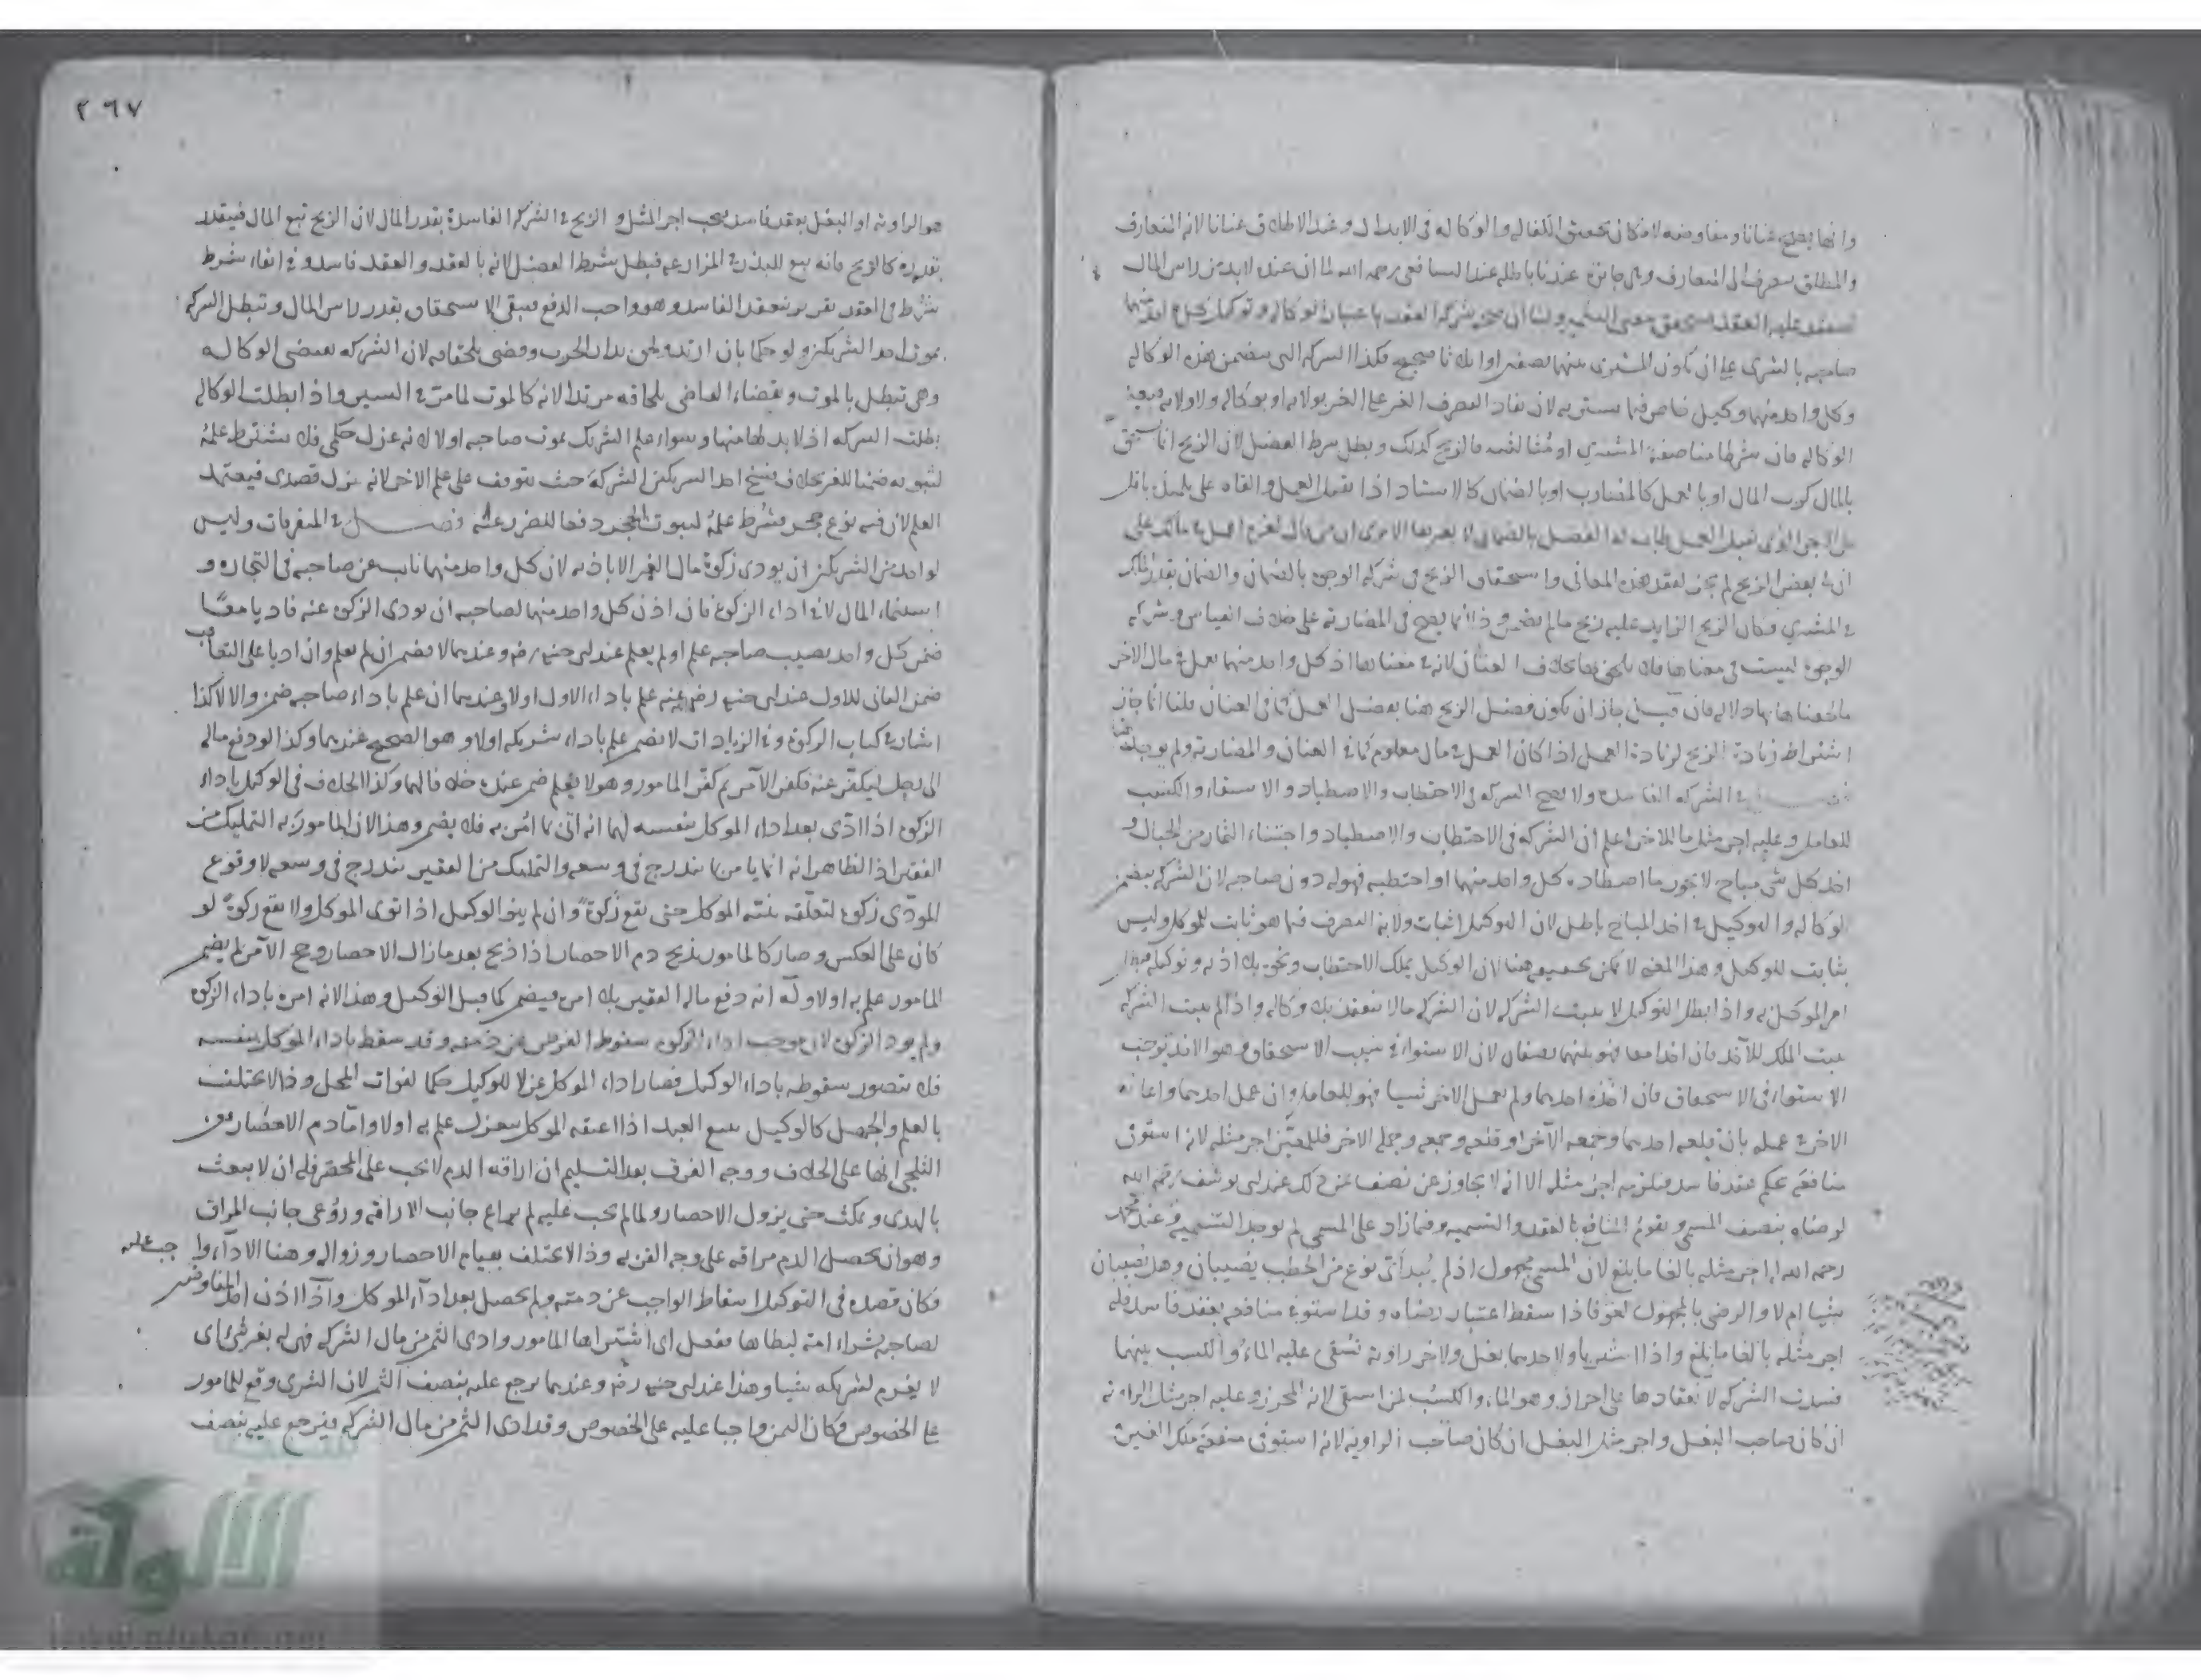 وانها تصح عنانا ومفاوضة لامكان تحقق الكفالة والوكالة في الابدال وعند الاطلاق عنانا لانه المتعارف
والمطلق ينصرف الى المتعارف وهي جائزة عندنا باطلة عند الشافعي رحمه الله لما ان عنده لابد من راس المال
صاحبه بالشرى على ان يكون المشترى بينهما نصفين او اثلاثا صحيح فكذا الشركة التي تتضمن هذه الوكالة
وكل واحد منهما وكيل صاحبه فيما يشتريه لان نفاذ التصرف على الغير بولاية او بوكالة ولا ولاية فتعين
الوكالة فان شرطا مناصفة المشترى او مثالثته فالربح كذلك وبطل شرط الفضل لان الربح انما يستحق
بالمال كرب المال او بالعمل كالمضارب او بالضمان كالاستاذ اذا تقبل العمل والقاه على تلميذ باقل
ان لك بعض الربح لم يجز لفقد هذه المعاني واستحقاق الربح في شركة الوجوه بالضمان والضمان بقدر الملك
في المشترى فكان الربح الزايد عليه ربح مالم يضمن وذا انما يصح في المضاربة على خلاف القياس وشركة
الوجوه ليست في معناها فلا يلحق بها بخلاف العنان لانه في معناها اذ كل واحد منهما يعمل في مال الآخر
فالحقناها بها دلالة فان قيل جاز ان يكون فضل الربح هنا بفضل العمل كما في العنان قلنا انما جاز
اشتراط زيادة الربح لزيادة العمل اذا كان العمل في مال معلوم كما في العنان والمضاربة ولم يوجد هنا
فصل في الشركة الفاسدة ولا تصح الشركة في الاحتطاب والاصطياد والاستقاء والكسب
للعامل وعليه اجر مثل ما للآخر اعلم ان الشركة في الاحتطاب والاصطياد واجتناء الثمار من الجبال و
اخذ كل شئ مباح لا تجوز وما اصطاده كل واحد منهما او احتطبه فهو له دون صاحبه لان الشركة تضمن
الوكالة والتوكيل في اخذ المباح باطل لان التوكيل اثبات ولاية التصرف فيما هو ثابت للموكل وليس
بثابت للوكيل وهذا المعنى لا يمكن تحقيقه هنا لان الوكيل يملك الاحتطاب ونحوه بلا اذنه وتوكيله
امر الموكل به واذا بطل التوكيل لا يثبت الشركة لان الشركة مالا تنعقد بلا وكالة واذا لم يثبت الشركة
يثبت الملك للآخذ فان اخذا معا فهو بينهما نصفان لان الاستواء في سبب الاستحقاق وهو الاخذ يوجب
الاستواء في الاستحقاق فان اخذه احدهما ولم يعمل الاخر شيئا فهو للعامل وان عمل احدهما واعانه
الاخر في عمله بان قلعه احدهما وجمعه الآخر او قلعه وجمعه وحمله الاخر فللمعين اجر مثله لانه استوفى
منافعه بحكم عقد فاسد فيلزمه اجر مثله الا انه لا يجاوز عن نصف ثمن ذلك عند ابي يوسف رحمه الله
لرضاه بنصف المسمى وتقوم المنافع بالعقد والتسمية وفيما زاد على المسمى لم يوجد التسمية وعند محمد
رحمه الله له اجر مثله بالغا ما بلغ لان المسمى مجهول اذ لم يدر اي نوع من الحطب يصيبان وهل يصيبان
شيئا ام لا والرضى بالمجهول لغو فاذا سقط اعتبار رضاه وقد استوفى منافعه بعقد فاسد فله
اجر مثله بالغا ما بلغ واذا اشتركا ولاحدهما بغل ولآخر راوية تسقى عليه الماء والكسب بينهما
فسدت الشركة لانعقادها على احراز وهو الماء والكسب لمن استقى لانه المحرز وعليه اجر مثل الراوية
ان كان صاحب البغل واجر مثل البغل ان كان صاحب الراوية لانه استوفى منفعة ملك الغير
٢٦٧
هو الراوية او البغل بعقد فاسد يجب اجر المثل والربح في الشركة الفاسدة بقدر المال لان الربح تبع المال فيتقدر
بقدره كالريع فانه تبع للبذر في المزارعة فبطل شرط الفضل لانه بالعقد والعقد فاسد وفي ابقاء شرط
شرط في العقد تقرير لعقد الفاسد وهو واجب الدفع فيبقى الاستحقاق بقدر راس المال وتبطل الشركة
بموت احد الشريكين ولو حكما بان ارتد ولحق بدار الحرب وقضى بلحاقه لان الشركة تقتضي الوكالة
وهي تبطل بالموت وبقضاء القاضي بلحاقه مرتدا لانه كالموت لما مر في السير واذا بطلت الوكالة
بطلت الشركة اذ لابد لها منها وسواء علم الشريك بموت صاحبه اولا لانه عزل حكمي فلا يشترط علمه
لثبوته ضمنا للغير بخلاف فسخ احد الشريكين الشركة حيث يتوقف على علم الاخر لانه عزل قصدي فيعتمد
العلم لان فيه نوع حجر فشرط علمه لثبوت الحجر دفعا للضرر عنه فصل في المتفرقات وليس
لواحد من الشريكين ان يودى زكوة مال الغير الا باذنه لان كل واحد منهما نايب عن صاحبه في التجارة و
استنماء المال لا في اداء الزكوة فان اذن كل واحد منهما لصاحبه ان يودى الزكوة عنه فاديا معا
ضمن كل واحد نصيب صاحبه علم او لم يعلم عند ابي حنيفة رض وعندهما لا يضمن ان لم يعلم وان اديا على التعاقب
ضمن الثاني للاول عند ابي حنيفة رض علم باداء الاول اولا وعندهما ان علم باداء صاحبه ضمن والا لا كذا
اشار في كتاب الزكوة وفي الزيادات لا يضمن علم باداء شريكه اولا وهو الصحيح عندهما وكذا لو دفع ماله
الى رجل ليكفر عنه فكفر الآمر ثم كفر المامور وهو لا يعلم ضمن عنده خلافا لهما وكذا الخلاف في الوكيل باداء
الزكوة اذا ادى بعد اداء الموكل بنفسه لهما انه اتى بما امر به فلا يضمن وهذا لان المامور به التمليك من
الفقير اذ الظاهر انه انما يامر بما يندرج في وسعه والتمليك من الفقير يندرج في وسعه لا وقوع
المودى زكوة لتعلقه بنية الموكل حتى يقع زكوة وان لم ينو الوكيل اذا نوى الموكل ولا يقع زكوة لو
كان على العكس وصار كالمامور بذبح دم الاحصار اذا ذبح بعد ما زال الاحصار وحج الآمر لم يضمن
المامور علم به اولا وله انه دفع ماله الفقير بلا امره فيضمن كما قبل التوكيل وهذا لانه امره باداء الزكوة
ولم يود الزكوة لان موجب اداء الزكوة سقوط الفرض عن ذمته وقد سقط باداء الموكل بنفسه
فلا يتصور سقوطه باداء الوكيل فصار اداء الموكل عزلا للوكيل حكما لفوات المحل وذا لا يختلف
بالعلم والجهل كالوكيل ببيع العبد اذا اعتقه الموكل ينعزل علم به اولا واما دم الاحصار
الثلجي انها على الخلاف ووجه الفرق بعد التسليم ان اراقة الدم لا تجب على المحصر فله ان لا يبعث
بالهدى ويمكث حتى يزول الاحصار ولما لم تجب عليه لم يراع جانب الاراقة وروعى جانب المراق
وهو ان تحصل الدم مراقة على وجه القربة وذا لا يختلف بقيام الاحصار وزواله وهنا الاداء واجب عليه
فكان قصده في التوكيل اسقاط الواجب عن ذمته ولم يحصل بعد اداء الموكل واذا اذن احد المفاوضين
لصاحبه بشراء امة ليطاها ففعل اي اشتراها المامور وادى الثمن من مال الشركة فهي له بغير شئ اي
لا يغرم لشريكه شيئا وهذا عند ابي حنيفة رض وعندهما يرجع عليه بنصف الثمن لان الشرى وقع للمامور
على الخصوص فكان الثمن واجبا عليه على الخصوص وقد ادى الثمن من مال الشركة فيرجع عليه بنصف
الألوكة